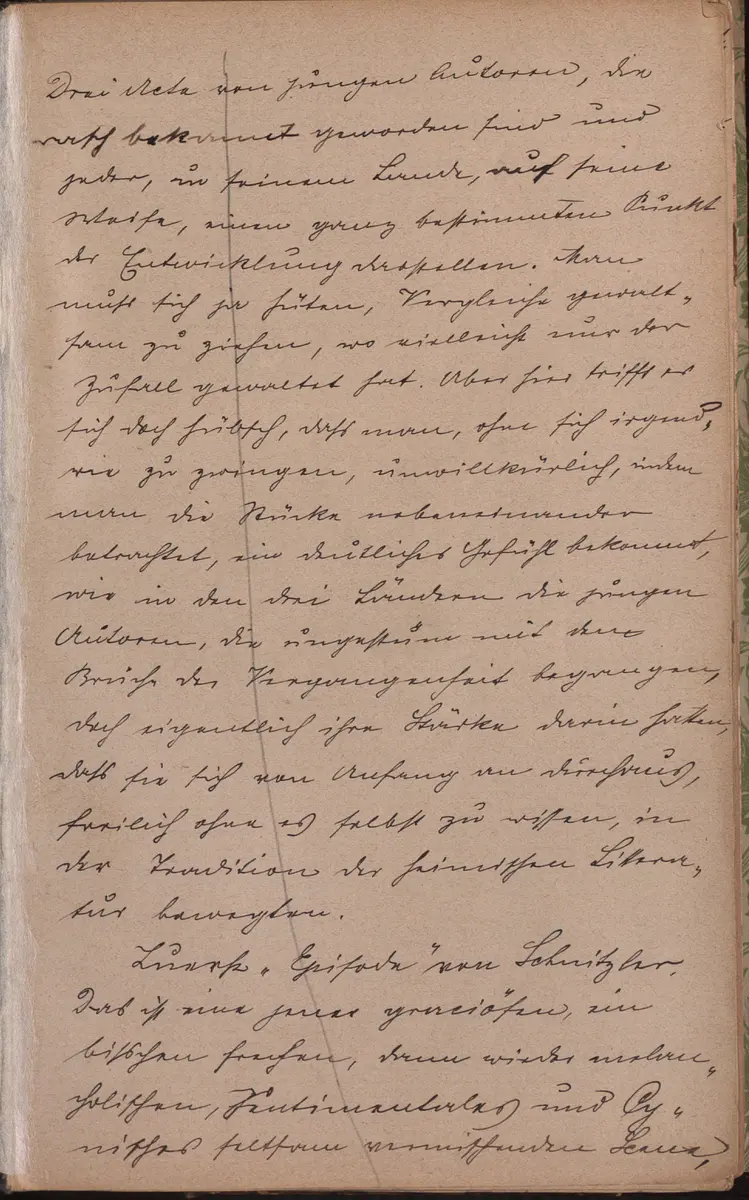 Drei Acte von jungen Autoren, die
rasch bekannt geworden sind und
jeder, in seinem Lande, auf seine
Weise, einen ganz bestimmten Punkt
der Entwicklung darstellen. Man
muß sich ja hüten, Vergleiche gewalt-
sam zu ziehen, wo vielleicht nur der
Zufall gewaltet hat. Aber hier trifft es
sich doch hübsch, daß man, ohne sich irgend-
wie zu zwingen, unwillkürlich, indem
man die Stücke nebeneinander
betrachtet, ein deutliches Gefühl bekommt,
wie in den drei Ländern die jungen
Autoren, die ungestüm mit dem
Bruche der Vergangenheit begangen,
doch eigentlich ihre Stärke darin hatten,
daß sie sich von Anfang an durchaus,
freilich ohne es selbst zu wissen, in
der Tradition der heimischen Littera-
tur bewegten.
Zuerst „Episode“ von Schnitzler.
Das ist eine jener graciösen, ein
bißchen frechen, dann wieder melan-
cholischen, Sentimentales und Cy-
nisches seltsam vermischenden Scene,